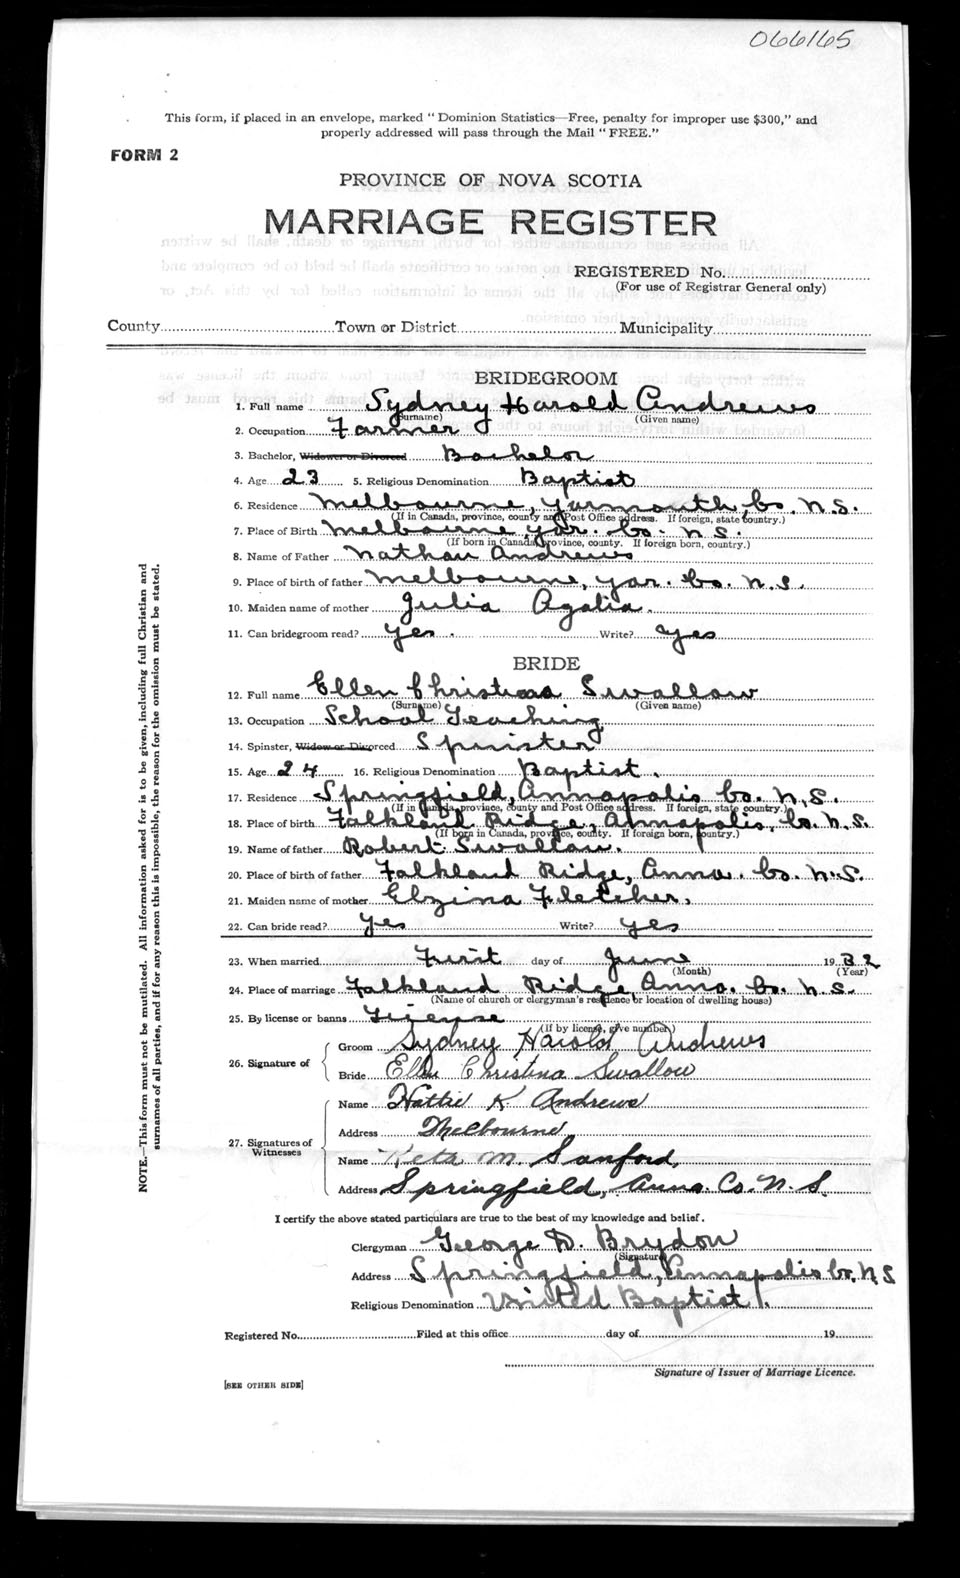 066165
This form, if placed in an envelope, marked "Dominion Statistics—Free, penalty for improper use $300," and
properly addressed will pass through the Mail "FREE."
FORM 2
PROVINCE OF NOVA SCOTIA
MARRIAGE REGISTER
REGISTERED No.
(For use of Registrar General only)
County Town or District Municipality
BRIDEGROOM
1. Full name Sydney Harold Andrews
(Surname) (Given name)
2. Occupation Farmer
3. Bachelor, Widower or Divorced Bachelor
4. Age 23 5. Religious Denomination Baptist
6. Residence Melbourne, Yarmouth, Co. N.S.
(If in Canada, province, county and Post Office address. If foreign, state country.)
7. Place of Birth Melbourne Yar. Co N S.
(If born in Canada, province, county. If foreign born, country.)
8. Name of Father Nathan Andrews
9. Place of birth of father Melbourne, Yar. Co. N.S.
10. Maiden name of mother Julia Agatia.
11. Can bridegroom read? Yes. Write? Yes
BRIDE
12. Full name Ellen Christena Swallow
(Surname) (Given name)
13. Occupation School Teaching
14. Spinster, Widow or Divorced Spinster
15. Age 24 16. Religious Denomination Baptist.
17. Residence Springfield, Annapolis Co. N.S.
(If in Canada, province, county and Post Office address. If foreign, state country.)
18. Place of birth Falkland Ridge, Annapolis, Co. N.S.
(If born in Canada, province, county. If foreign born, country.)
19. Name of father Robert Swallow.
20. Place of birth of father Falkland Ridge, Anna. Co. N.S.
21. Maiden name of mother Elzina Fletcher,
22. Can bride read? Yes Write? Yes
23. When married First day of June 1932
(Month) (Year)
24. Place of marriage Falkland Ridge Anna. Co. N.S.
(Name of church or clergyman's residence or location of dwelling house)
25. By license or banns License
(If by license, give number)
26. Signature of
Groom Sydney Harold Andrews
Bride Ellen Christina Swallow
27. Signatures of Witnesses
Name Hattie K Andrews
Address Melbourne
Name Keta M. Sanford,
Address Springfield, Anna. Co. N. S.
I certify the above stated particulars are true to the best of my knowledge and belief.
Clergyman George D. Brydon
(Signature)
Address Springfield, Annapolis Co. N.S
Religious Denomination United Baptist.
Registered No. Filed at this office day of 19
Signature of Issuer of Marriage Licence.
[SEE OTHER SIDE]
NOTE.—This form must not be mutilated. All information asked for is to be given, including full Christian and
surnames of all parties, and if for any reason this is impossible, the reason for the omission must be stated.